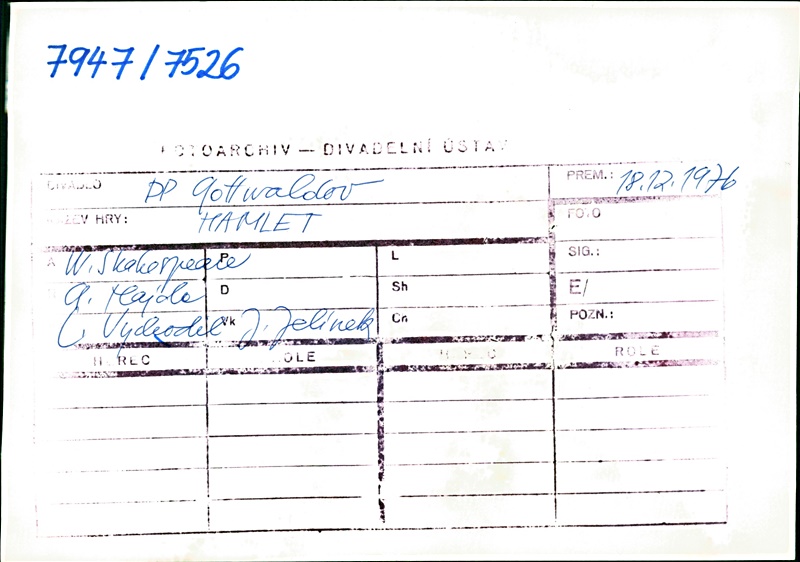 7947/7526
FOTOARCHIV — DIVADELNÍ ÚSTAV
DIVADLO DP Gottwaldov PREM.: 18.12.1976
NÁZEV HRY: HAMLET FOTO
A W. Shakespeare P L SIG.:
A. Hajda D Sh E/
L. Vychodil Vk J. Jelínek Ch POZN.:
HEREC ROLE HEREC ROLE